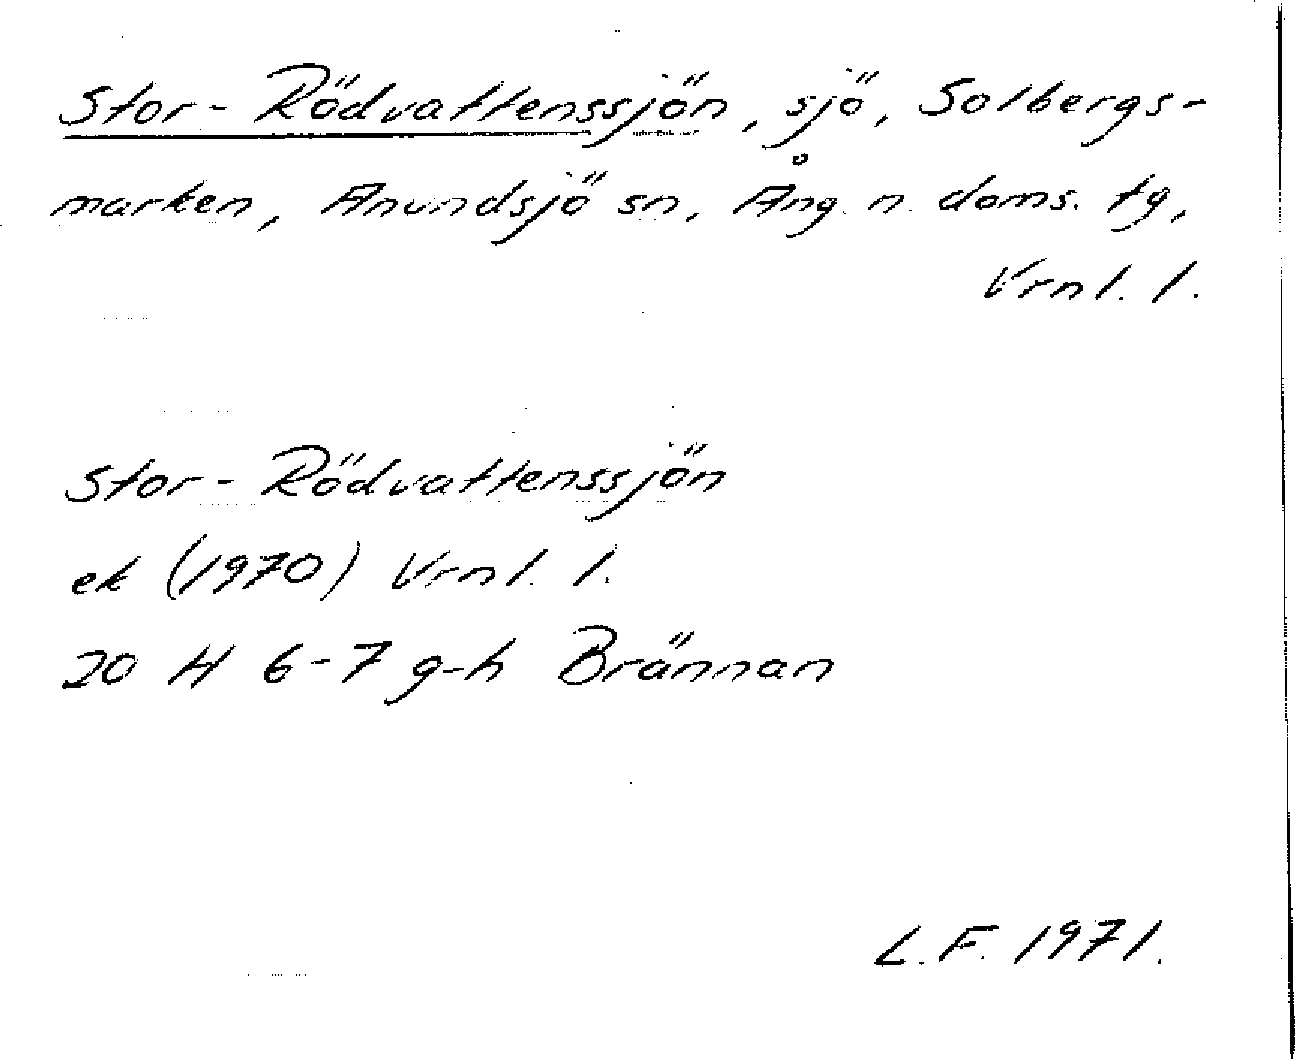 Stor-Rödvattenssjön, sjö, Solbergs-
marken, Anundsjö sn, Ång. n. doms. tg,
Vrnl. l.
Stor-Rödvattenssjön
ek (1970) Vrnl. l.
20 H 6-7 g-h Brännan
L.F. 1971.